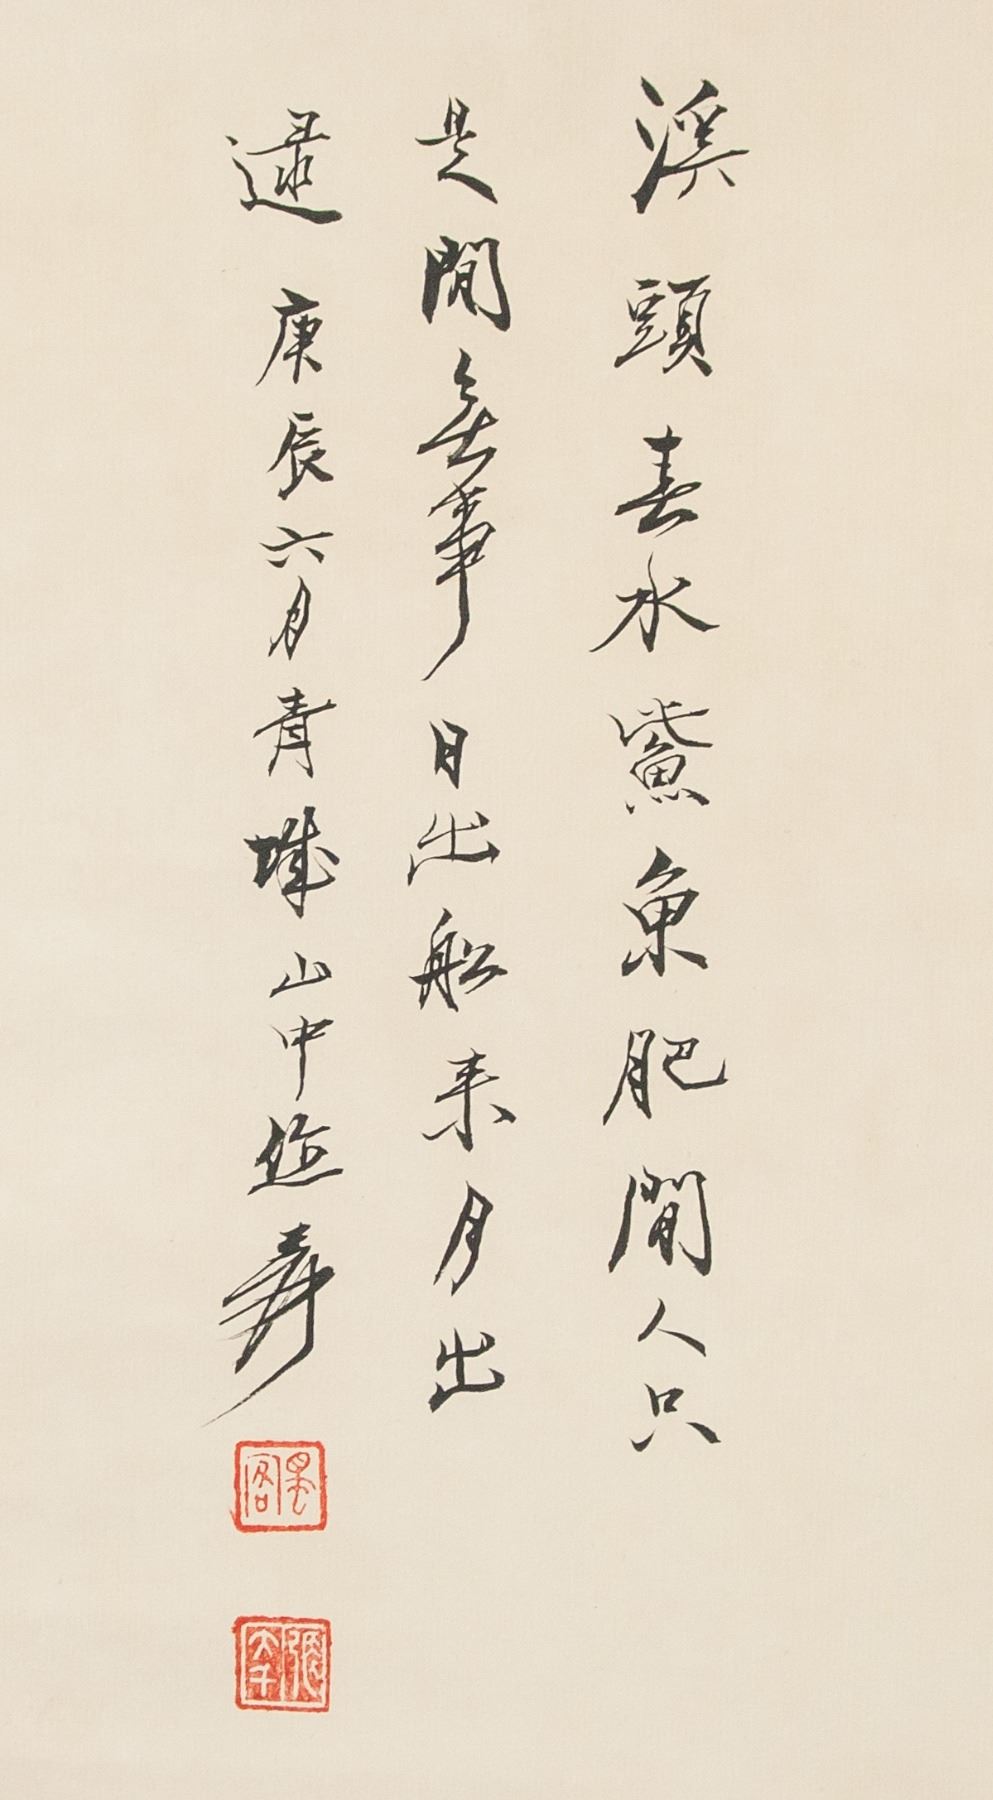 溪頭春水鮆魚肥閒人只
是閒無事日出船來月出
逯庚辰六月青城山中作爰
張大千